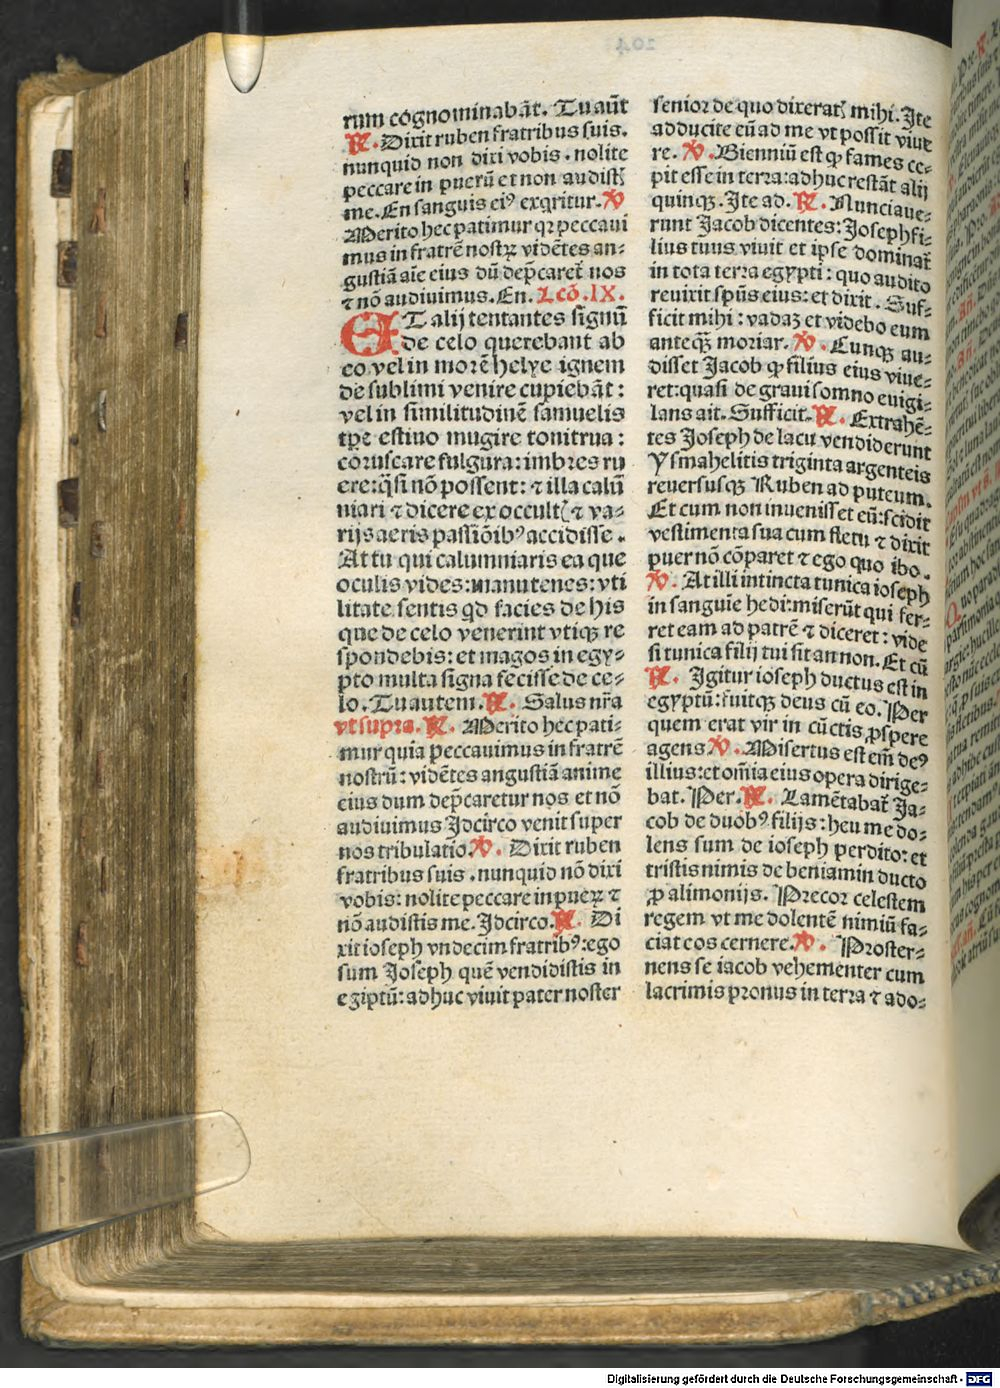 rum cōgnominabāt. Tu aūt
℟. Dixit ruben fratribus suis.
nunquid non dixi vobis . nolite
peccare in puerū et non audistꝭ
me. En sanguis eiꝰ exqritur. ℣
Merito hec patimur qꝛ peccaui
mus in fratrē nostꝝ vidētes an⸗
gustiā aīe eius dū dep̄caret̄ nos
⁊ nō audiuimus. En. Lcō. IX.
ET alij tentantes signū
de celo querebant ab
eo vel in morē helye ignem
de sublimi venire cupiebāt :
vel in similitudinē samuelis
tꝑe estiuo mugire tonitrua :
coruscare fulgura: imbres ru
ere: q̄si nō possent: ⁊ illa calū
niari ⁊ dicere ex occultꝭ ⁊ va⸗
rijs aeris passiōibꝰ accidisse .
At tu qui calumniaris ea que
oculis vides: manu tenes: vti
litate sentis qd facies de his
que de celo venerint vtiqꝫ re
spondebis: et magos in egy⸗
pto multa signa fecisse de ce⸗
lo. Tu autem. ℟. Salus nr̄a
vt supra. ℟. Merito hec pati⸗
mur quia peccauimus in fratrē
nostrū: vidētes angustiā anime
eius dum dep̄caretur nos et nō
audiuimus Jdcirco venit super
nos tribulatio. ℣. Dixit ruben
fratribus suis . nunquid nō dixi
vobis: nolite peccare in pueꝝ ⁊
nō audistis me. Jdcirco. ℟. Di
xit ioseph vndecim fratribꝰ: ego
sum Joseph quē vendidistis in
egiptū: adhuc viuit pater noster
senior de quo dixeratꝭ mihi. Jte
adducite eū ad me vt possit viue
re. ℣. Bienniū est qꝙ fames ce⸗
pit esse in terra: adhuc restāt alij
quinqꝫ. Jte ad. ℟. Nunciaue⸗
runt Jacob dicentes: Joseph fi⸗
lius tuus viuit et ipse dominat̄
in tota terra egypti : quo audito
reuixit spūs eius: et dixit . Suf⸗
ficit mihi : vadaꝫ et videbo eum
anteqꝫ moriar. ℣. Cunqꝫ au⸗
disset Jacob qꝙ filius eius viue⸗
ret: quasi de graui somno euigi⸗
lans ait. Sufficit. ℟. Extrahē⸗
tes Joseph de lacu vendiderunt
Ysmahelitis triginta argenteis
reuersusqꝫ Ruben ad puteum.
Et cum non inuenisset eū: scidit
vestimenta sua cum fletu ⁊ dixit
puer nō cōparet ⁊ ego quo ibo.
℣. At illi intincta tunica ioseph
in sanguīe hedi: miserūt qui fer⸗
ret eam ad patrē ⁊ diceret : vide
si tunica filij tui sit an non. Et cū
℟. Jgitur ioseph ductus est in
egyptū: fuitqꝫ deus cū eo. Per
quem erat vir in cūctis ꝓspere
agens ℣. Misertus est em̄ deꝰ
illius: et om̄ia eius opera dirige⸗
bat. Per. ℟. Lamētabat̄ Ja⸗
cob de duobꝰ filijs : heu me do⸗
lens sum de ioseph perdito: et
tristis nimis de beniamin ducto
ꝓ alimonijs. Precor celestem
regem vt me dolentē nimiū fa⸗
ciat eos cernere. ℣. Proster⸗
nens se iacob vehementer cum
lacrimis pronus in terra ⁊ ado⸗
Digitalisierung gefördert durch die Deutsche Forschungsgemeinschaft - DFG